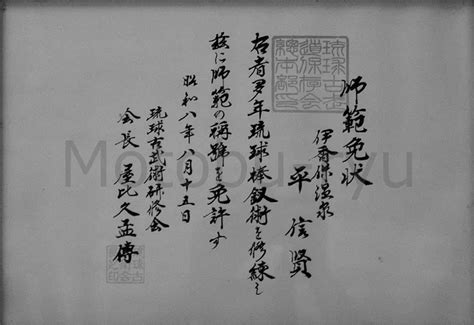 師範免状
伊香保温泉
平信賢
右者多年琉球棒釵術を修練し
茲に師範の稱號を免許す
昭和八年八月十五日
琉球古武術研修会
会長 屋比久孟傳
Motobu-ryu